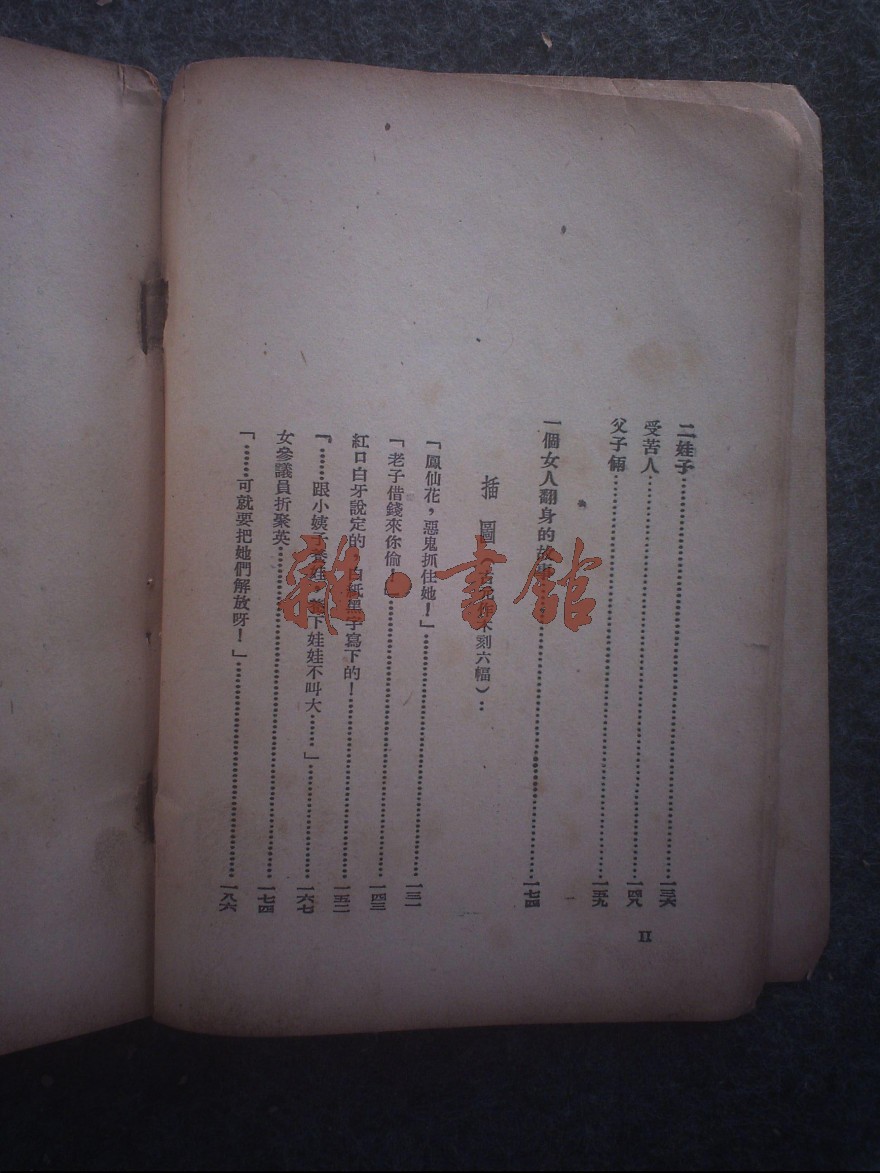 二娃子…………一三六
受苦人…………一四九
父子倆…………一五九
一個女人翻身的故事…………一七四
插 圖（古元作木刻六幅）：
「鳳仙花，惡鬼抓住她！」…………一三一
「老子借錢來你偷！」…………一四三
紅口白牙說定的，白紙黑字寫下的！…………一五二
「……跟小姨子養娃，養下娃娃不叫大……」…………一六七
女參議員折聚英…………一七四
「……可就要把她們解放呀！」…………一八六
II
雜·書館